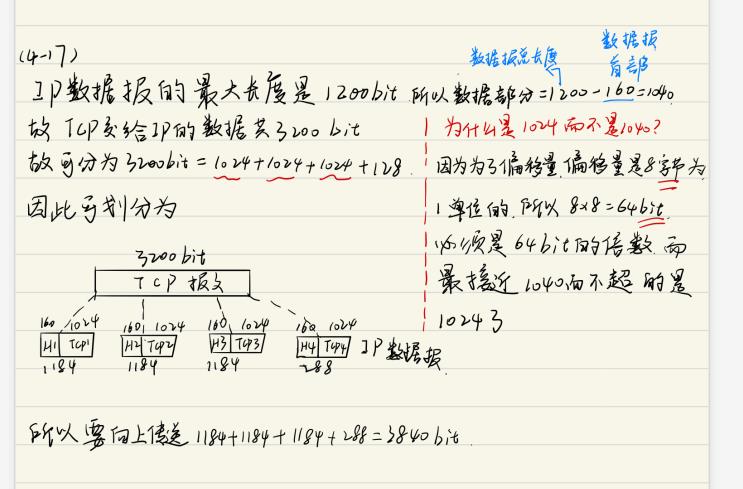 (4-17)
数据报总长度
数据报
首部
IP数据报的最大长度是1200bit 所以数据部分=1200-160=1040
故TCP交给IP的数据共3200bit
为什么是1024而不是1040?
故可分为3200bit=1024+1024+1024+128
因为为了偏移量,偏移量是8字节为
因此可划分为
1单位的,所以8×8=64bit
必须是64bit的倍数.而
最接近1040而不超的是
1024了
3200bit
TCP报文
160 1024 160 1024 160 1024 160 1024
H1 TCP1 H2 TCP2 H3 TCP3 H4 TCP4 IP数据报
1184 1184 1184 288
所以要向上传送1184+1184+1184+288=3840bit.